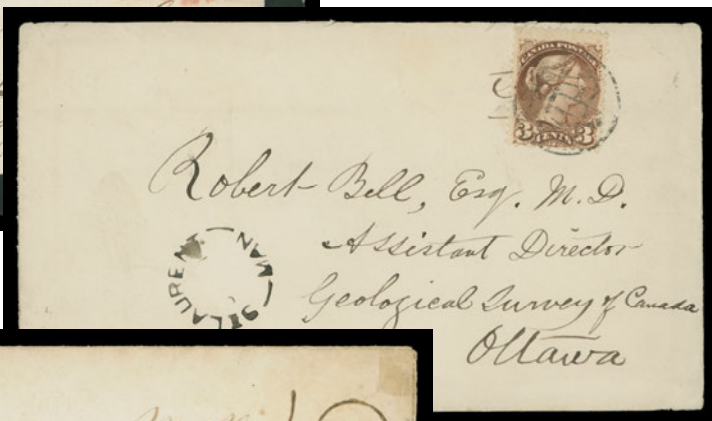 CANADA POSTAGE
3 CENTS 3
Robert Bell, Esq. M.D.
Assistant Director
Geological Survey of Canada
Ottawa
ST LAURENT MAN